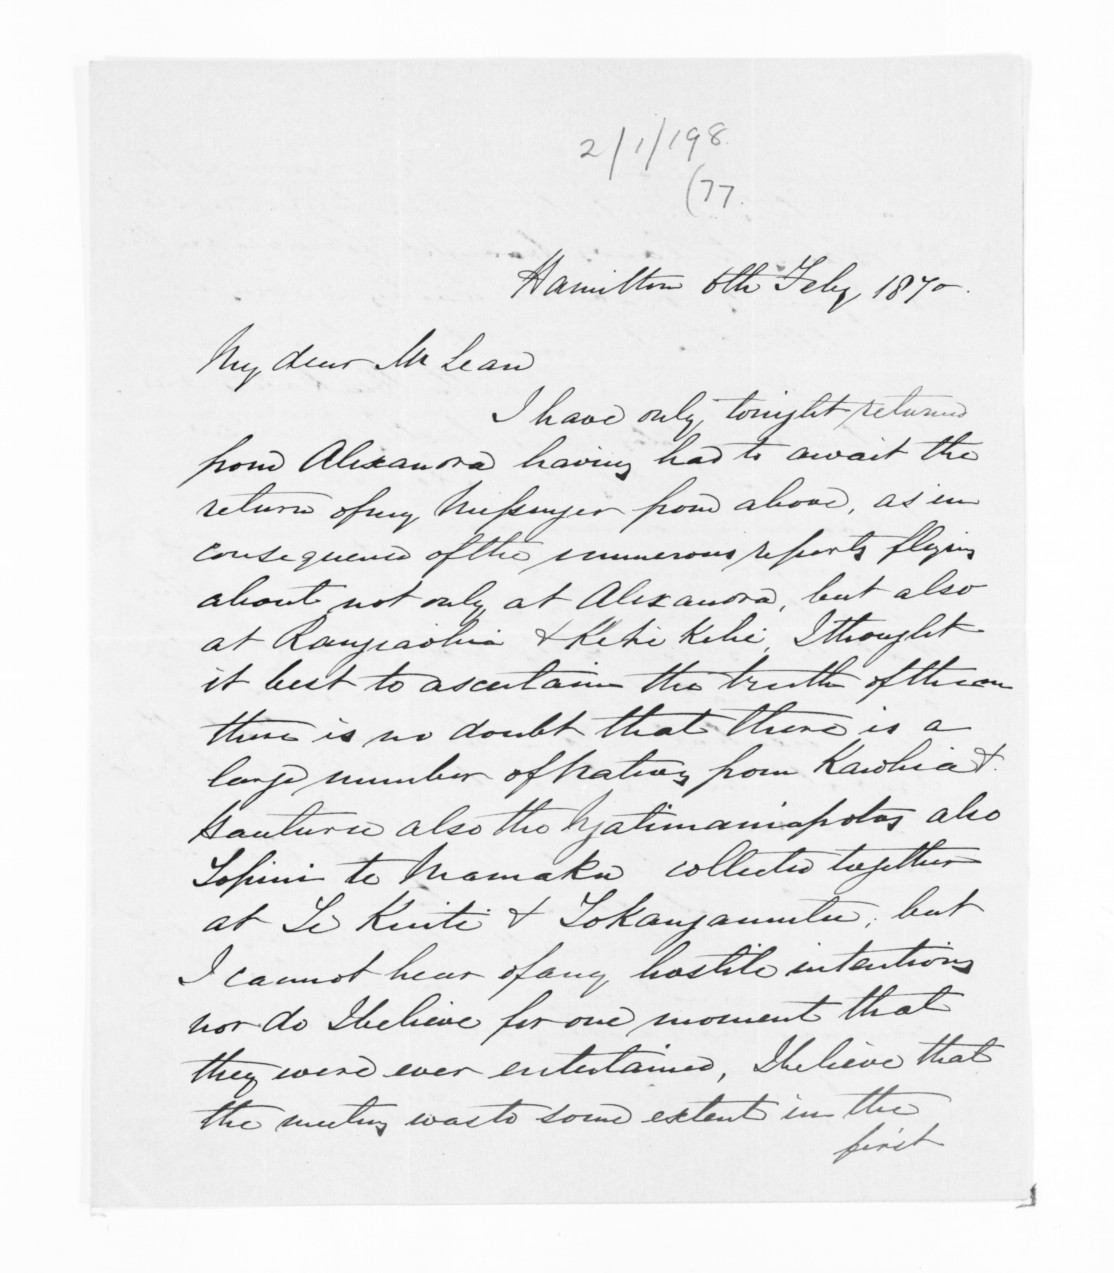 2/1/198
(77.
Hamilton 6th Feby 1870.
My dear McLean
I have only tonight returned
from Alexandra having had to await the
return of my Messenger from above, as in
consequence of the numerous reports flying
about not only at Alexandra, but also
at Rangiaohia & Kihi Kihi, I thought
it best to ascertain the truth of them
there is no doubt that there is a
large number of Natives from Kawhia &
also the Ngatimaniapotos also
Topini te Mamaku collected together
at Te Kuiti & Tokangamutu; but
I cannot hear of any hostile intentions
nor do I believe for one moment that
they were ever entertained, I believe that
the meeting was to some extent in the
first